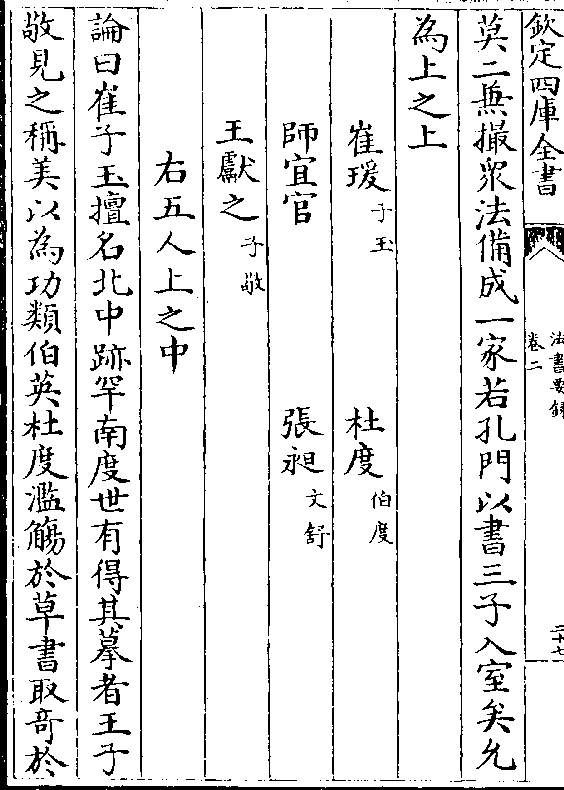 欽定四庫全書
法書要錄
卷二
二十七
莫二無撮衆法備成一家若孔門以書三子入室矣允
為上之上
崔瑗子玉
杜度伯度
師宜官
張昶文舒
王獻之子敬
右五人上之中
論曰崔子玉擅名北中跡罕南度世有得其摹者王子
敬見之稱美以為功類伯英杜度濫觴於草書取奇於